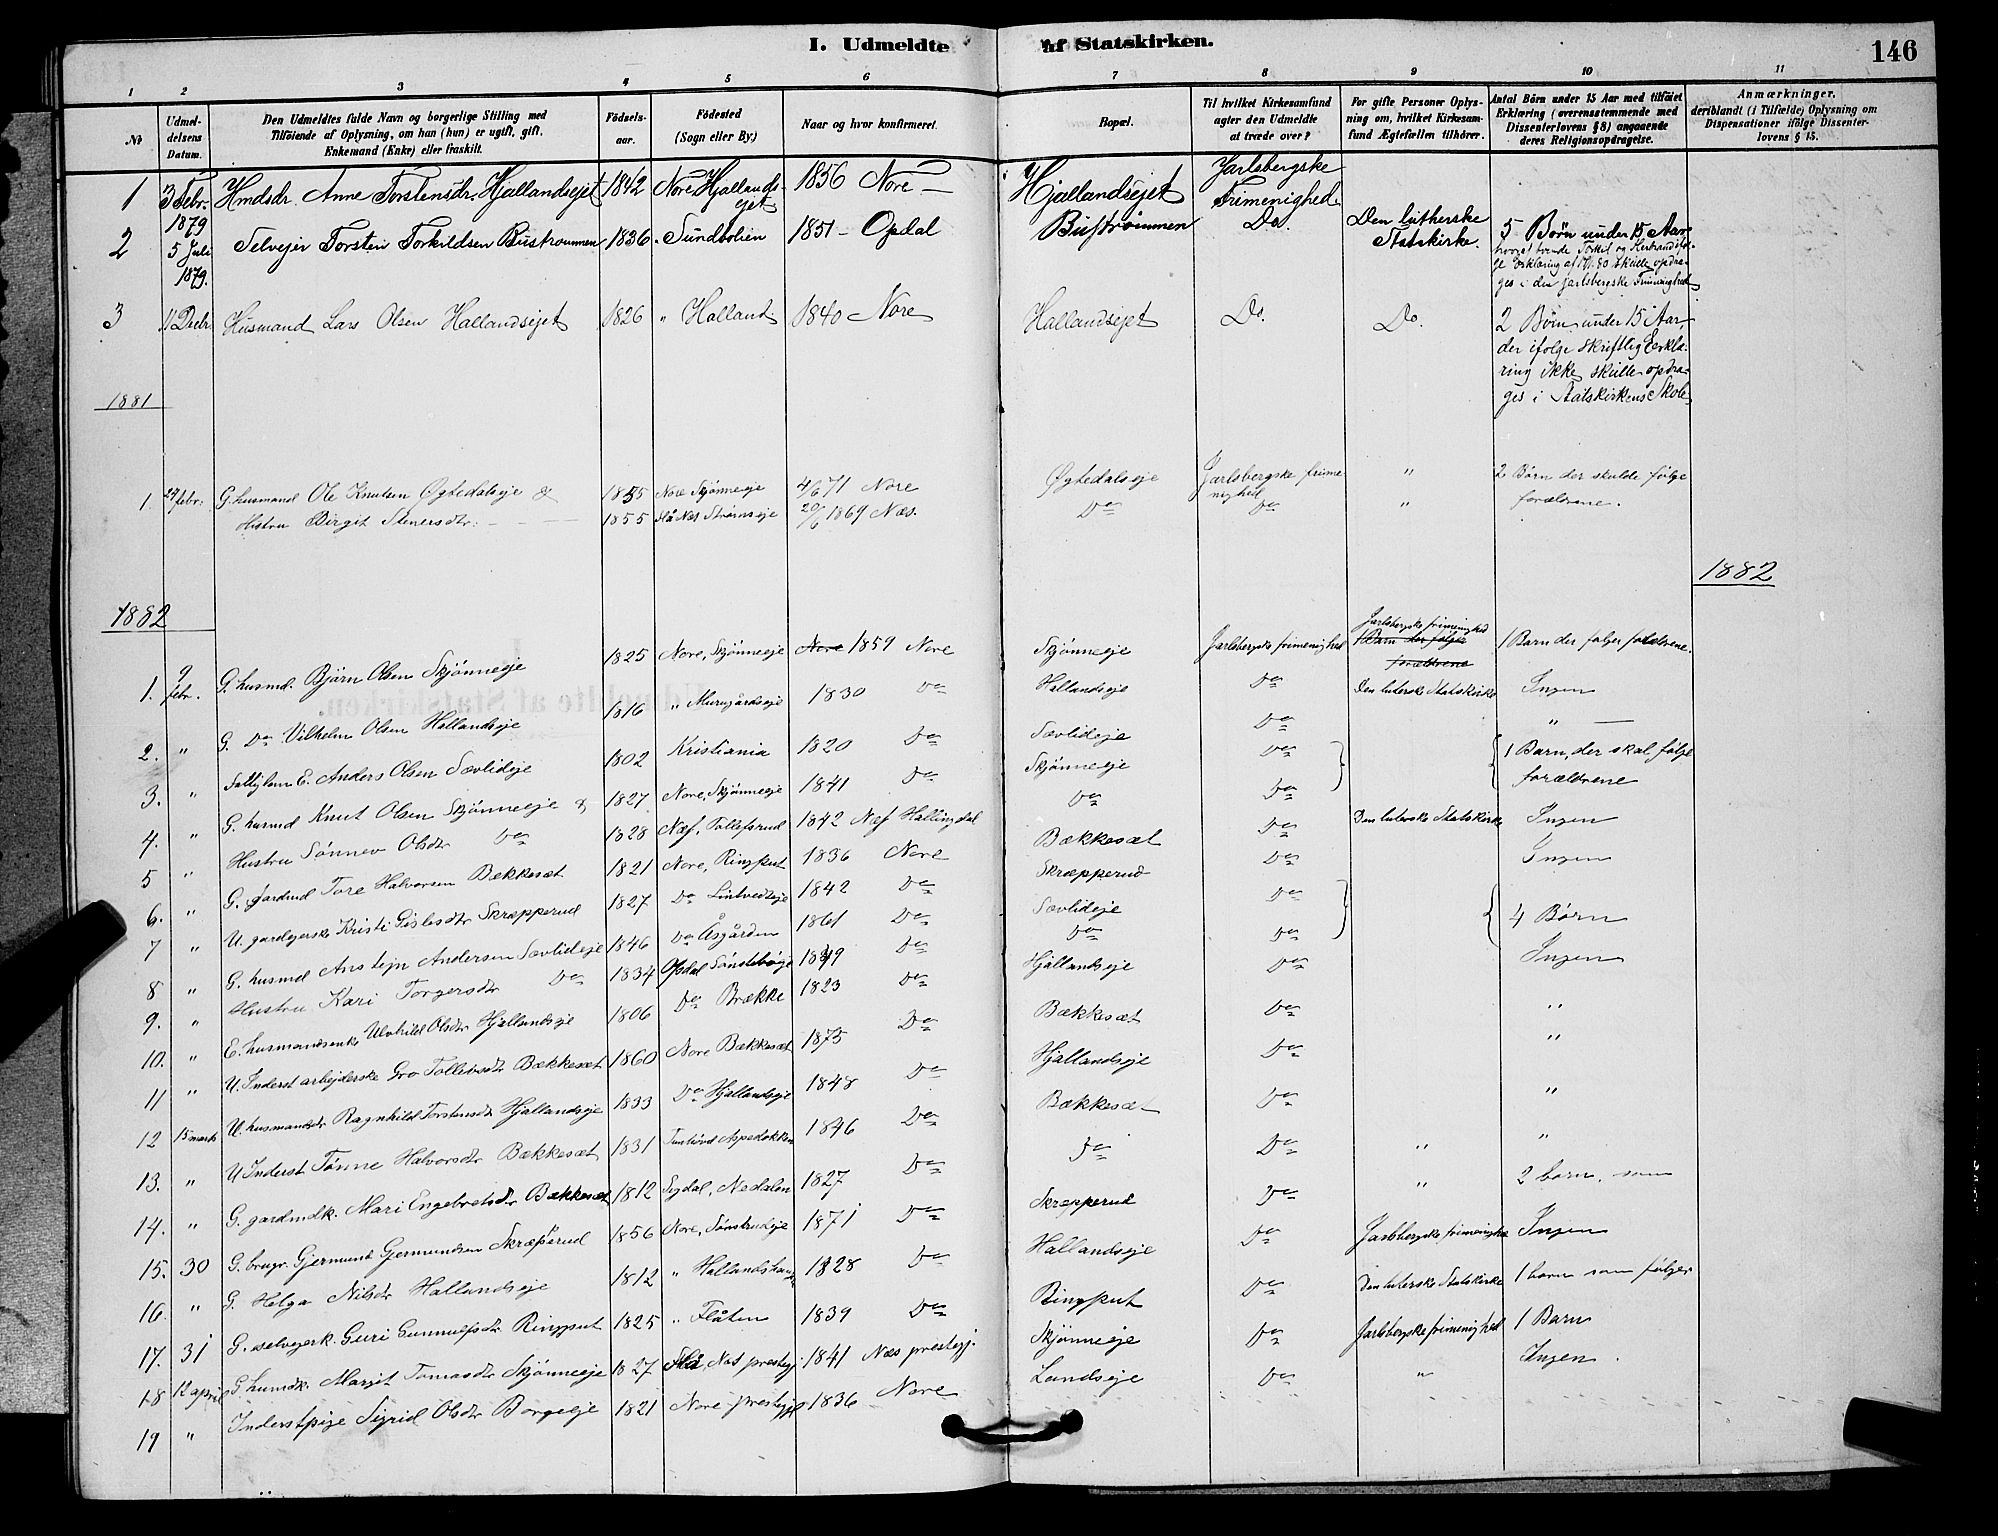 I. Udmeldte af Statskirken.
146
1 2 3 4 5 6 7 8 9 10 11
No
Udmeldelsens Datum.
Den Udmeldtes fulde Navn og borgerlige Stilling med
Tilföiende af Oplysning, om han (hun) er ugift, gift,
Enkemand (Enke) eller fraskilt.
Födselsaar.
Födested
(Sogn eller By.)
Naar og hvor konfirmeret.
Bopæl.
Til hvilket Kirkesamfund
agter den Udmeldte
at træde over?
For gifte Personer Oplysning om, hvilket Kirkesamfund Ægtefællen tilhörer.
Antal Börn under 15 Aar med tilföiet
Erklæring (overensstemmende med
Dissenterlovens § 8) angaaende
deres Religionsopdragelse.
Anmærkninger,
deriblandt (i Tilfælde) Oplysning om
Dispensationer ifölge Dissenterlovens § 15.
1 3 Febr. 1879 Hmdsdr. Anne Torstensdr. Hjallandsejet 1842 Nore Hjallandsejet 1856 Nore — Hjallandsejet Jarlsbergske Frimenighed
2 5 Juli 1879. Selvejer Torsten Torkildsen Bustrommen 1836 " Sundbolien 1851 – Opdal Bustrømmen Do. Den lutherske Statskirke. 5 Børn under 15 Aar
ges i den jarlsbergske Frimenighed
3 11 Decbr. Husmand Lars Olsen Hallandsejet 1826 " Halland 1840 Nore Hallandsejet Do. Do. 2 Børn under 15 Aar,
der ifølge skriftlig Erklæ-
ring ikke skulle opdra-
ges i Statskirkens Skole
1881
1. 24 febr. G. husmand Ole Knutsen Øgtedalseje & 1855 Nore Skjønneeje 4/6 71 Nore Øgtedalseje Jarlsbergske frimenighed " 2 Børn der skulde følge
Hustru Birgit Stenersdtr. — — — 1855 Flå Næs Strømseje 20/6 1869 Næs. Do Do " forældrene.
1882
1882
1. 9 febr. G. husmd. Bjørn Olsen Skjønneeje 1825 Nore, Skjønneeje Nore 1859 Nore Skjønneeje Jarlsbergske frimenighed Jarlsbergske frimenighed 1 Barn der følger forældrene 1 Barn der følger forældrene.
2. " G. Do Vilhelm Olsen Hallandseje 1816 " Murugårdseje 1830 Do Hallandseje Do Den luterske Statskirke Ingen
3. " E. Anders Olsen Sævlideje 1802 Kristiania 1820 Do Sævlideje Do " —
4. " G. husmd Knut Olsen Skjønneeje & 1827 Nore, Skjønneeje 1841 Do Skjønneeje Do 1 Barn, der skal følge
5 " Hustru Sønnev Olsdtr Do 1828 Næs, Tollefsrud 1842 Næs Hallingdal Do Do forældrene
6. " G. gardmd Tore Halvorsen Bækkesæt 1821 Nore, Ringput 1836 Nore Bækkesæt Do Den luterske Statskirke Ingen
7 " U. gardejerske Kristi Gislesdtr Skræpperud 1827 Do Lintvedteje 1842 Do Skræpperud Do Ingen
8 " G. husmd Anstejn Andersen Sævlideje 1846 Do Åsgården 1861 Do Sævlideje Do 4 Børn
9. " Hustru Kari Torgersdtr Do 1834 Opdal Sønstebøeje 1849 Do Do Do
10. " E. husmandsenke Ulvhild Olsdtr Hjallandseje 1806 Do Brække 1823 Do Hjallandseje Do Ingen
11 " U. Inderst arbejderske Gro Tollevsdtr Bækkesæt 1860 Nore Bækkesæt 1875 Do Bækkesæt Do "
12 15 marts U. husmandsdtr Ragnhild Torstensdtr Hjallandseje 1833 Do Hjallandseje 1848 Do Hjallandseje Do "
13. " U Inderst Tønne Halvorsdtr Bækkesæt 1831 Tunhovd 1846 Do Bækkesæt Do "
14. " G. gardmdk. Mari Engebretsdtr Bækkesæt 1812 Sigdal, Nedalen 1827 Do Do Do " "
15. 30 G. brugr. Gjermund Gjermundsen Skræperud 1856 Nore, Sønstrudeje 1871 Do Skræpperud Do " 2 børn, som
16. " G. Helga Nilsdtr Hallandseje 1812 " 1828 Do Hallandseje Do Jarlsbergske frimenighed Ingen
17. 31 G. selvejerk. Guri Gunnulfsdtr Ringput 1825 " Flåten 1839 Do Ringput Do Den luterske Statskirke 1 barn som følger
18 12 april G. husmdk. Margit Tomasdtr Skjønneeje 1827 Flå, Næs prestegj. 1841 Næs prestegj. Skjønneeje Do Jarlsbergske frimenighed 1 Barn
19 " Inderstpige Sigrid Olsdtr Borgeeje 1821 Nore prestegj. 1836 Nore Landseje Do " Ingen.